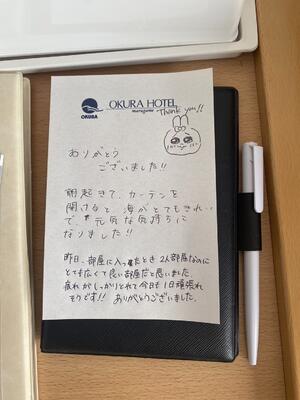 OKURA
OKURA HOTEL
marugame
Thank you!!
ありがとう
ございました!!
朝起きて、カーテンを
開けると 海がとてもきれい
で、元気な気持ちに
なりました!!
昨日、部屋に入ったとき 2人部屋なのに
とても広くて良い部屋だと思いました。
疲れがしっかりとれて今日も1日頑張れ
そうです!! ありがとうございました。